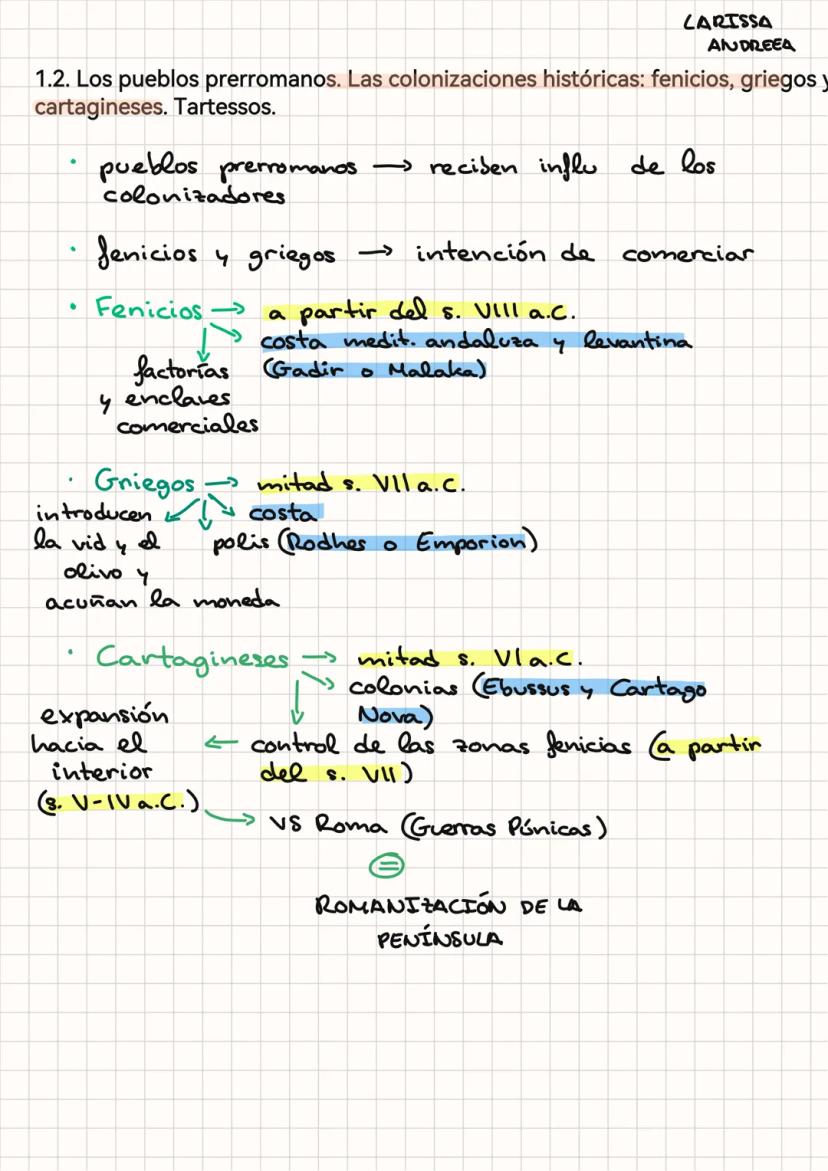 LARISSA
ANDREEA
1.2. Los pueblos prerromanos. Las colonizaciones históricas: fenicios, griegos y
cartagineses. Tartessos.
• pueblos prerromanos → reciben influ de los
colonizadores
• fenicios y griegos → intención de comerciar
• Fenicios → a partir del s. VIII a.C.
costa medit. andaluza y levantina
factorías (Gadir o Malaka)
y enclaves
comerciales
• Griegos → mitad s. VII a.C.
introducen costa
la vid y el polis (Rodhes o Emporion)
olivo y
acuñan la moneda
• Cartagineses → mitad s. VI a.C.
colonias (Ebussus y Cartago
expansión Nova)
hacia el ← control de las zonas fenicias (a partir
interior del s. VII)
(s. V-IV a.C.)
→ VS Roma (Guerras Púnicas)
=
ROMANIZACIÓN DE LA
PENÍNSULA